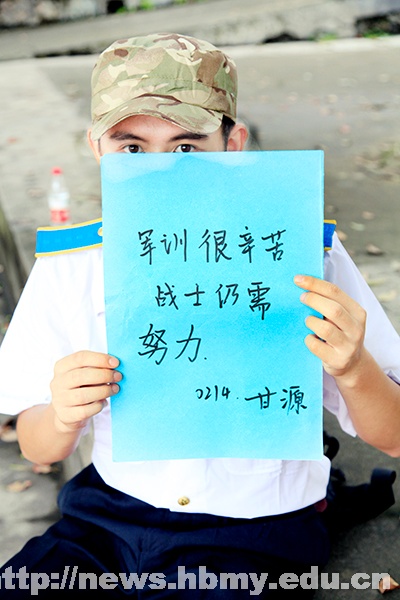 军训很辛苦
战士仍需
努力.
0214. 甘源
http://news.hbmy.edu.cn